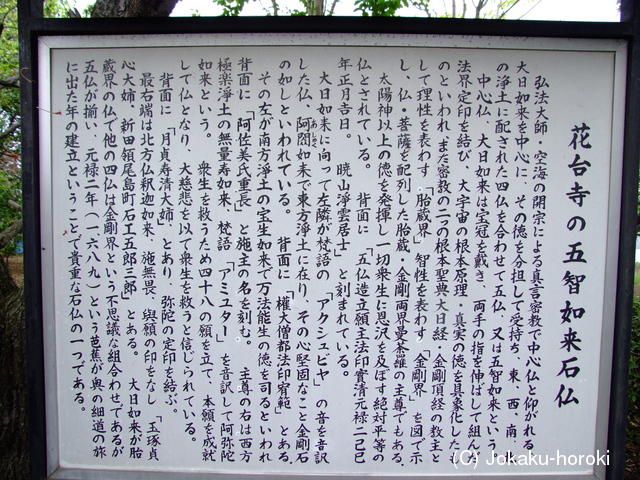 花台寺の五智如来石仏
弘法大師・空海の開宗による真言密教で中心仏と仰がれる
大日如来を中心に、その徳を分担して受持ち、東・西・南・北
の浄土に配された四仏を合わせて五仏、又は五智如来という。
中心仏、大日如来は宝冠を戴き、両手の指を伸ばして組んだ
法界定印を結び、大宇宙の根本原理・真実の徳を具象化したも
のといわれ、また密教の二つの根本聖典大日経・金剛頂経の教主と
して理性を表わす「胎蔵界」智性を表わす「金剛界」を図で示
し、仏・菩薩を配列した胎蔵・金剛両界曼荼羅の主尊でもある。
太陽神以上の徳を発揮し一切衆生に恩沢を及ぼす絶対平等の
仏とされている。 背面に「五仏造立願主法印實清元禄二己巳
年正月吉日。 暁山淨雲居士」と刻まれている。
大日如来に向って左隣が梵語の「アクシュビヤ」の音を音訳
した仏、阿閦如来で東方浄土に在り、その心堅固なこと金剛石
あしゅく
の如しといわれている。 背面に「權大僧都法印宥範」とある。
その左が南方浄土の宝生如来で万法能生の徳を司るといわれ
背面に「阿佐美氏重長」と施主の名を刻む。 主尊の右は西方
極楽浄土の無量寿如来、梵語「アミユター」を音訳して阿弥陀
如来という。 衆生を救うため四十八の願を立て、本願を成就
して仏となり、大慈悲を以て衆生を救うと信じられている。
背面に「月貞寿清大姉」とあり、弥陀の定印を結ぶ。
最右端は北方仏釈迦如来、施無畏・與願の印をなし「玉琢貞
心大姉、新田領尾島町石工五郎三郎」とある。 大日如来が胎
蔵界の仏で他の四仏は金剛界という不思議な組合わせであるが
五仏が揃い、元禄二年(一六八九)という芭蕉が奥の細道の旅
に出た年の建立ということで貴重な石仏の一つである。
(C) Jokaku-horoki